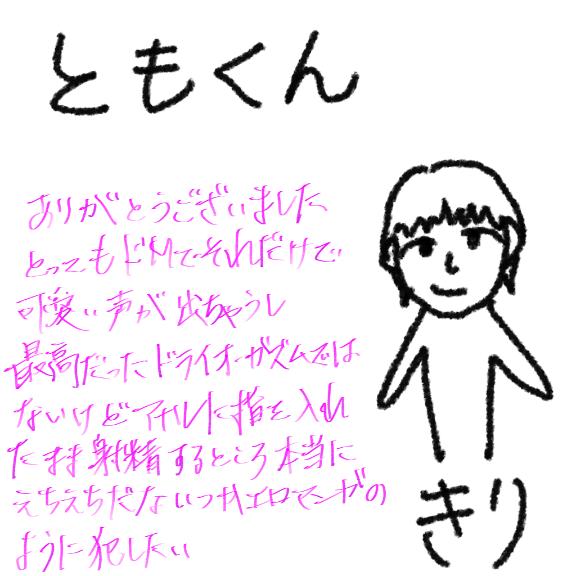 ともくん
ありがとうございました
とってもドMでそれだけで
可愛い声が出ちゃうし
最高だったドライオーガズムでは
ないけどアナルに指を入れ
たまま射精するところ本当に
えちえちだないつかエロマンガの
ように犯したい
きり